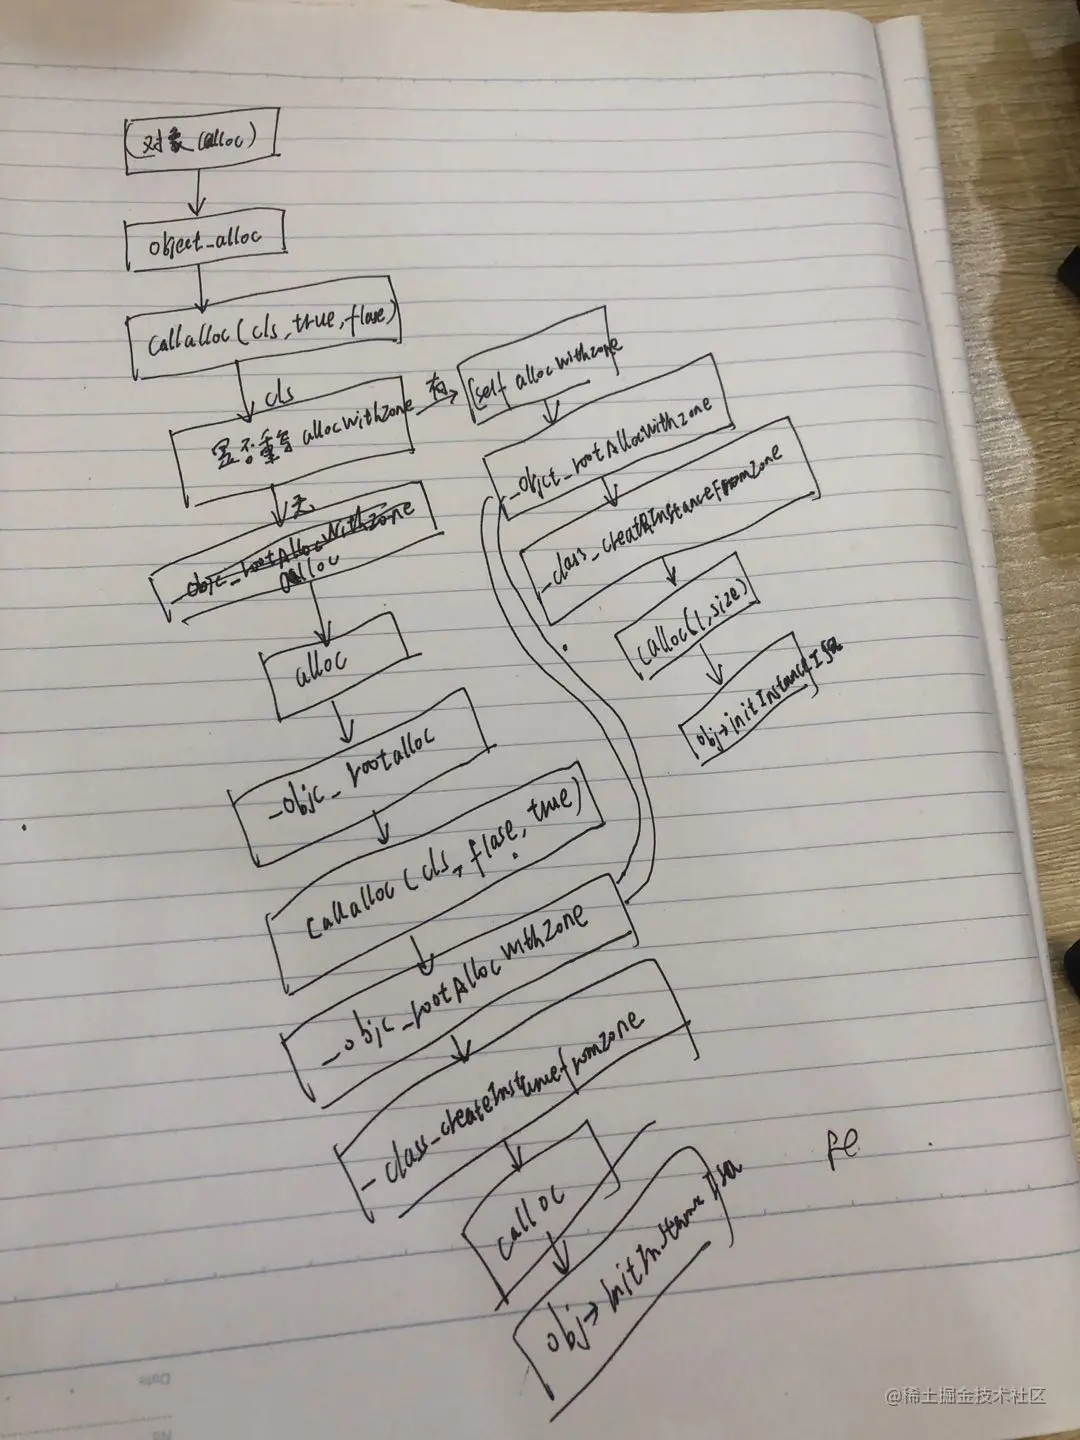 (对象(alloc)
object_alloc
callalloc(cls,true,flase)
cls
是否重写allocWithZone
有
[self allocWithzone
无
_objc_rootAllocWithZone
alloc
_objct_rootAllocWithzone
calloc(1,size)
obj→initInstanceIsa
alloc
_objc_rootalloc
callalloc(cls,flase,true)
_objc_rootAllocWithZone
_class_createInstancefromzone
calloc
obj→InitInstanceIsa
Date
No
@稀土掘金技术社区